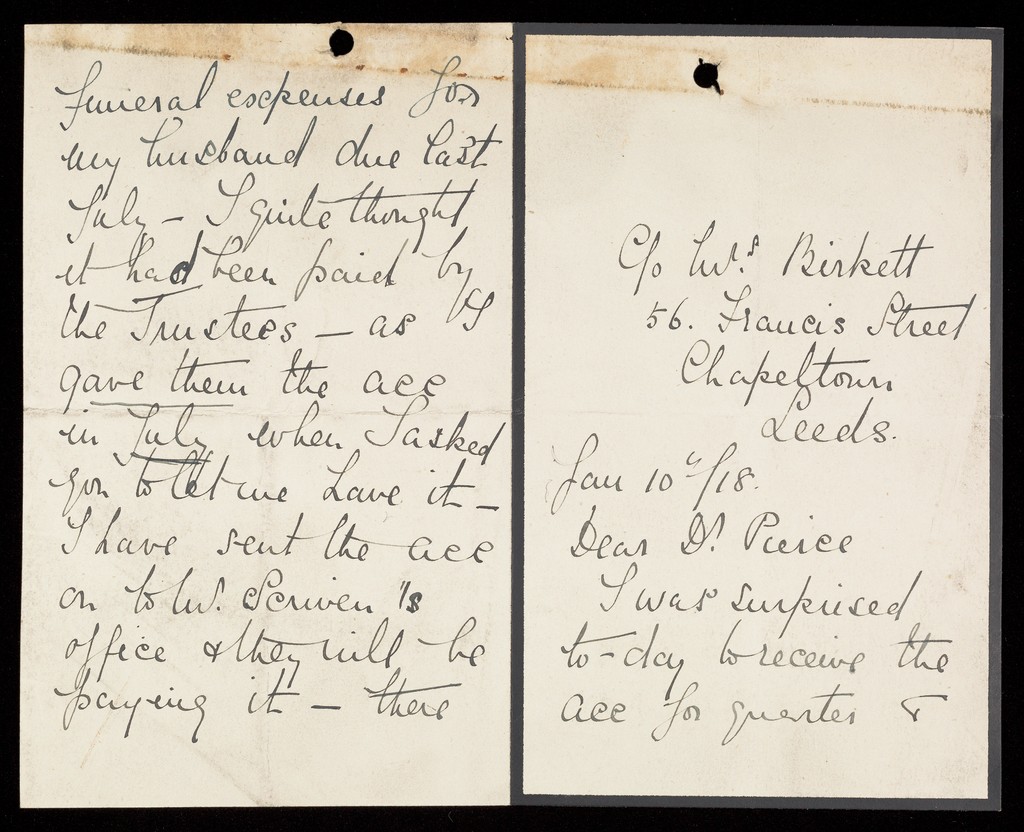 C/o Mrs. Birkett
56. Francis Street
Chapeltown
Leeds.
Jan 10th/18.
Dear Dr. Pierce
I was surprised
to-day to receive the
acc for quarter &
funeral expenses for
my husband due last
July - I quite thought
it had been paid by
the Trustees - as I
gave them the acc
in July when I asked
you to let me have it -
I have sent the acc
on to Mr. Scriven's
office & they will be
paying it - there